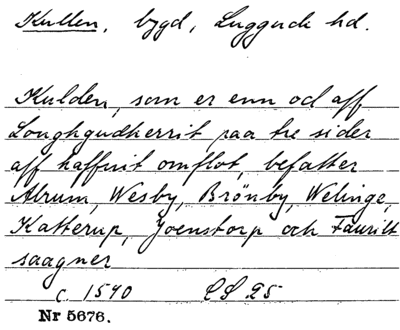 Kullen, bygd, Luggude hd.
Kulden, som er enn od aff
Longhgudherrit paa tre sider
aff haffuit omflot, befatter
Abrum, Wesby, Brönby, Welinge,
Katterup, Joenstorp och Faurilt
saagner
c. 1590 LS 25
Nr 5676.